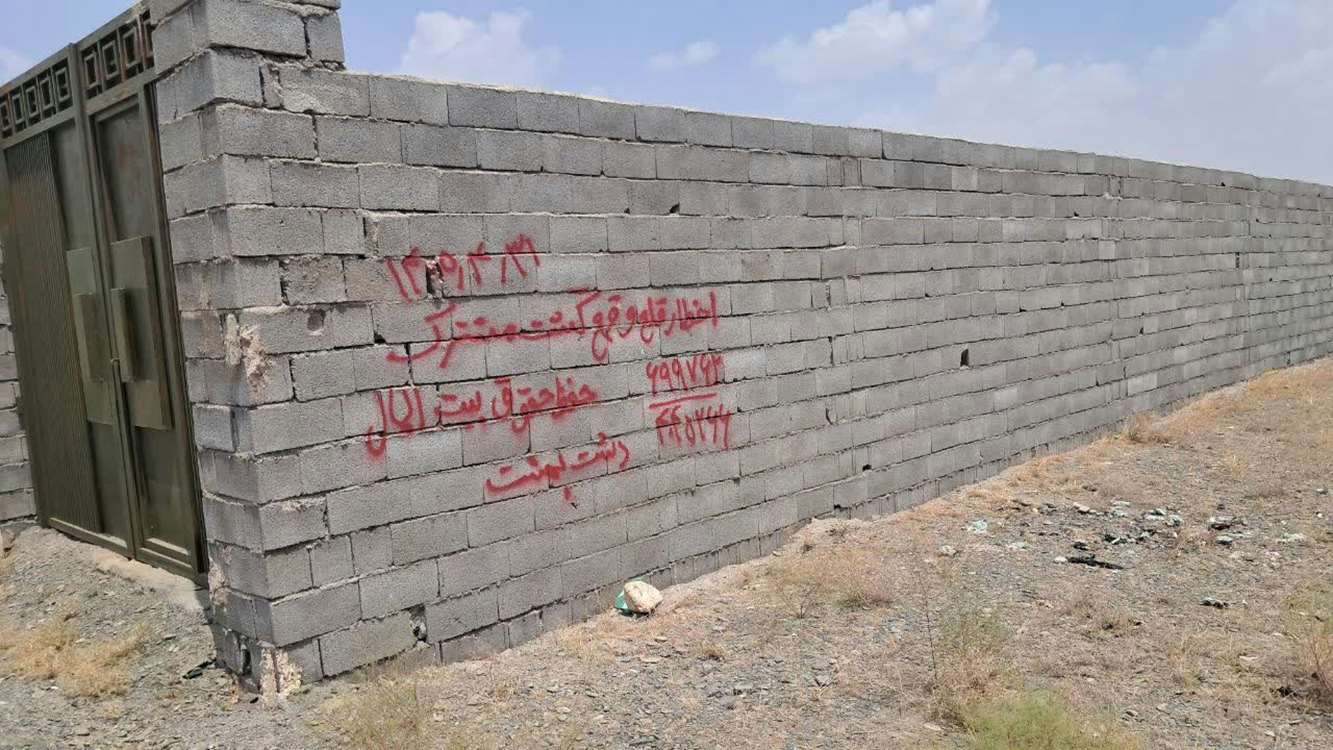 ۱۴۰۴,۴,۳۱
اخطار قلع و قمع گشت مشترک
حفظ حقوق بیت المال
۶۹۹۷۶۳
دشت بهشت